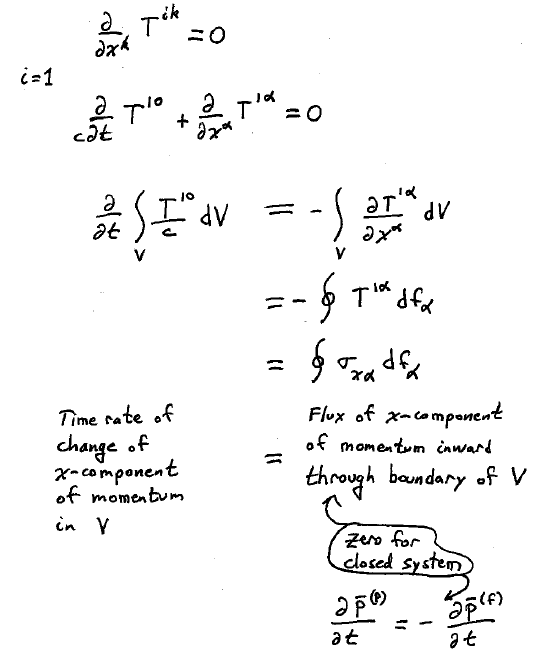 ∂/∂x^k T^{ik} = 0
i=1
∂/c∂t T^{10} + ∂/∂x^α T^{1α} = 0
∂/∂t ∫_V T^{10}/c dV = - ∫_V ∂T^{1α}/∂x^α dV
= - ∮ T^{1α} df_α
= ∮ σ_{xα} df_α
Time rate of change of x-component of momentum in V = Flux of x-component of momentum inward through boundary of V
Zero for
closed system
∂p̄^{(P)}/∂t = - ∂p̄^{(f)}/∂t